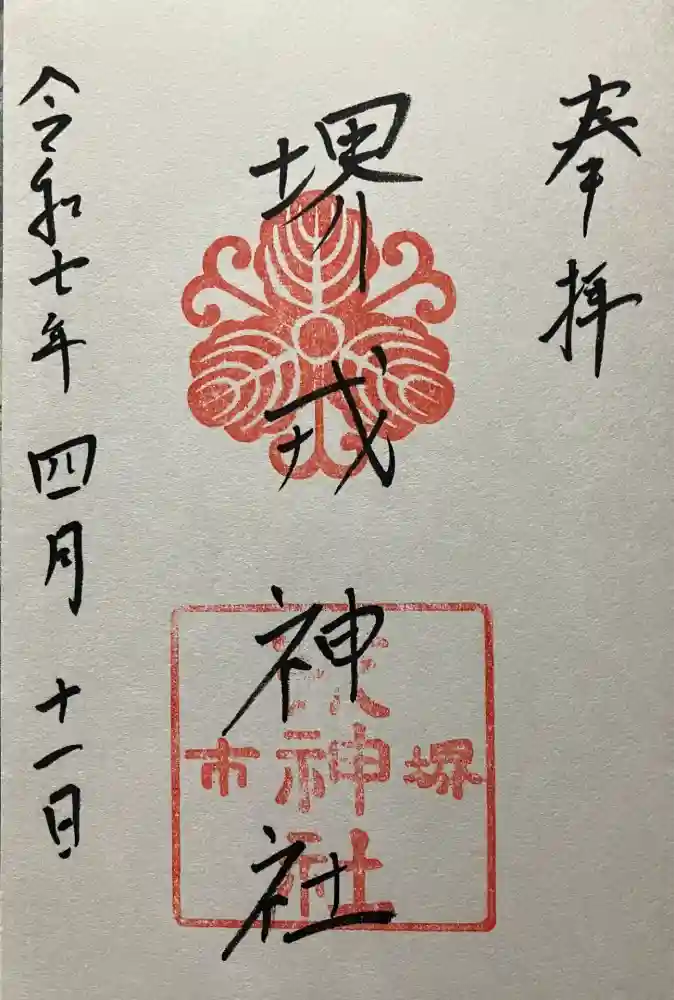 奉拝
堺戎神社
堺
戎神社
市
令和七年 四月 十一日